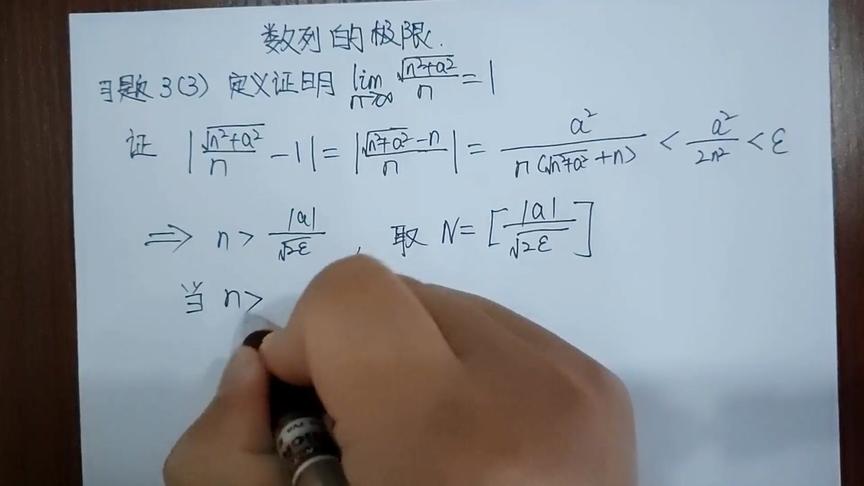 数列的极限.
习题 3(3) 定义证明 lim n→∞ √(n²+a²)/n = 1
证 |√(n²+a²)/n - 1| = |(√(n²+a²) - n)/n| = a²/(n(√(n²+a²)+n)) < a²/(2n²) < ε
⇒ n > |a|/√(2ε) , 取 N = [|a|/√(2ε)]
当 n>